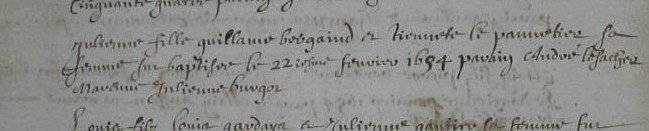 Cinquante quatre
Julienne fille guillame bergaind et Tiennete le pannetier sa
femme fut baptisee le 22iesme febvrier 1654 parain André lesacher
Maraine Julienne burgot
Louis filz Louis gardaye et Julienne gautier sa femme fut